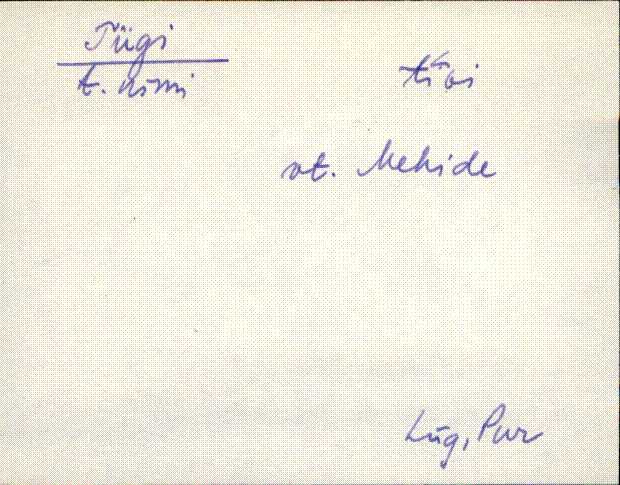 Tiigi
t. nimi
tīgi
vt. Mehide
Lüg, Pur